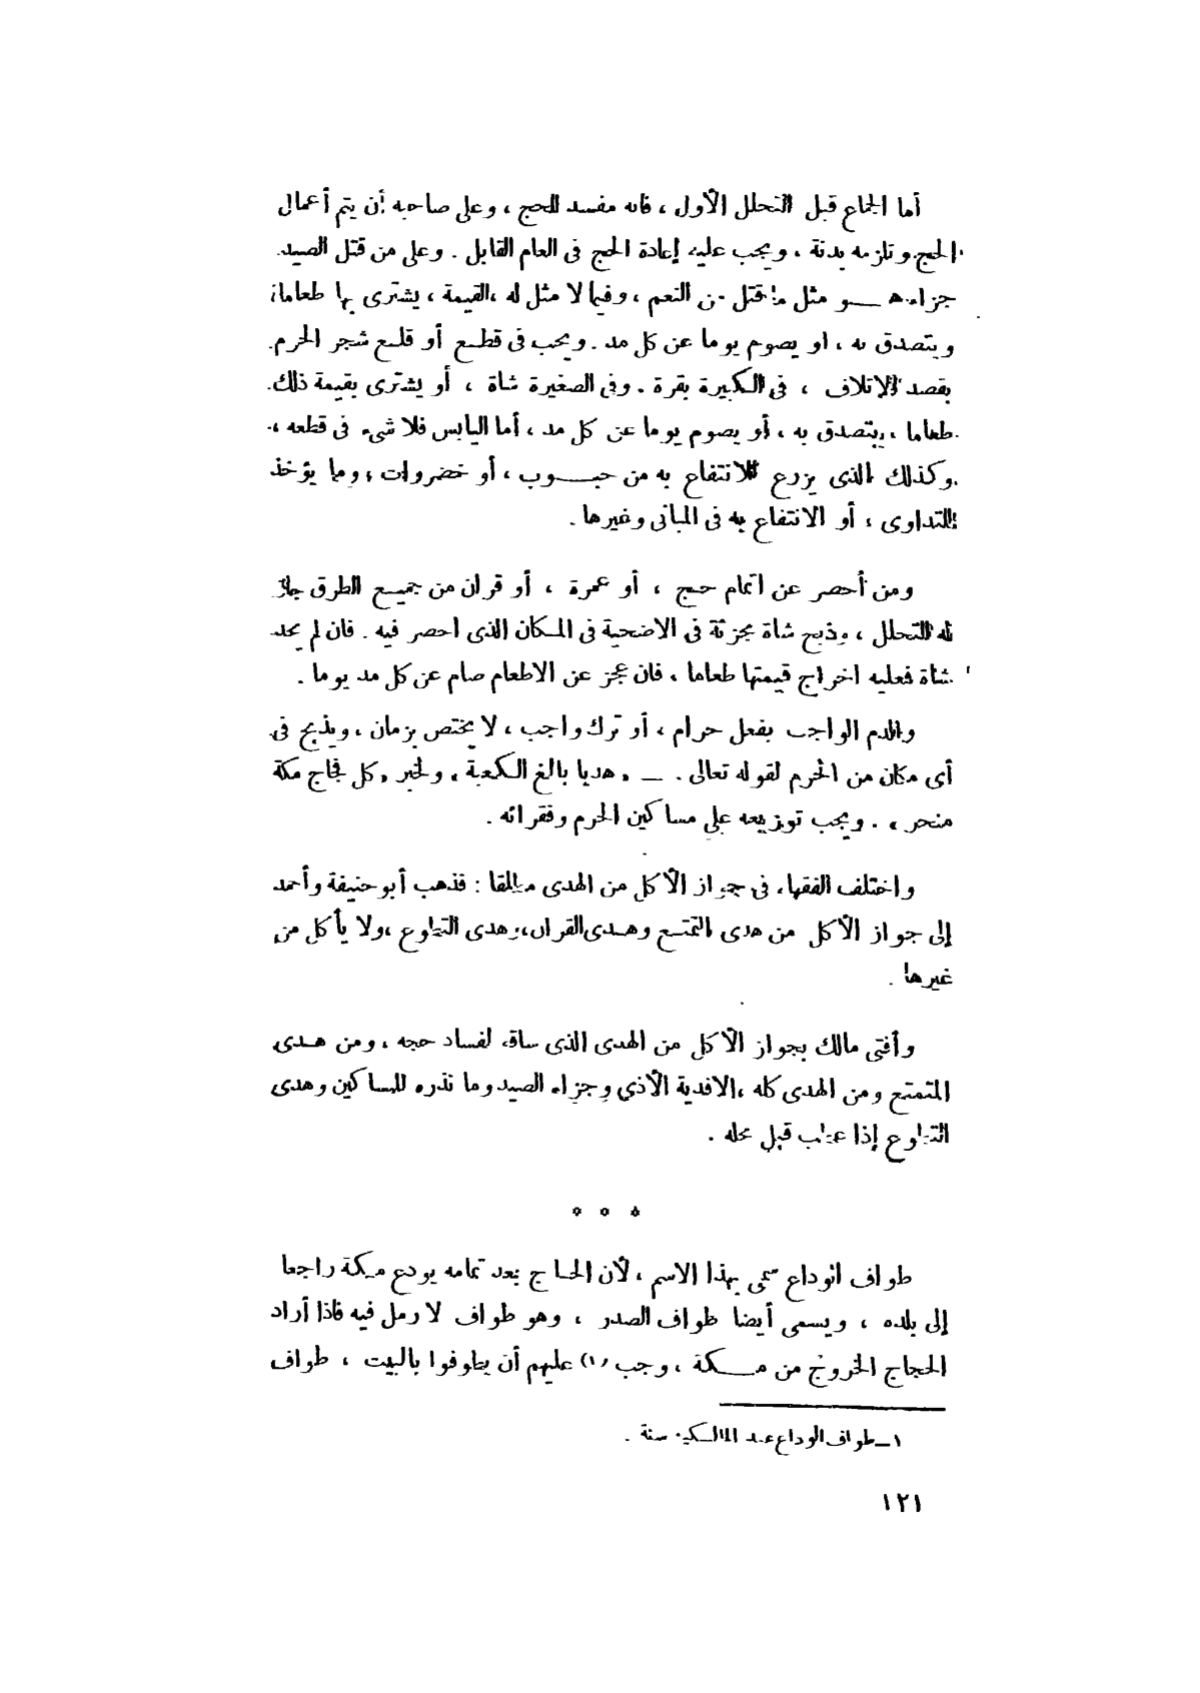 أما الجماع قبل التحلل الأول ، فانه مفسد للحج ، وعلى صاحبه أن يتم أعمال
الحج وتلزمه بدنة ، ويجب عليه إعادة الحج فى العام القابل . وعلى من قتل الصيد
جزاء هـــو مثل ما قتل من النعم ، وفيما لا مثل له ، القيمة ، يشترى بها طعاما
ويتصدق به ، او يصوم يوما عن كل مد . ويجب فى قطع أو قلع شجر الحرم
بقصد الإتلاف ، فى الكبيرة بقرة . وفى الصغيرة شاة ، أو يشترى بقيمة ذلك
طعاما ، يتصدق به ، أو يصوم يوما عن كل مد ، أما اليابس فلا شىء فى قطعه ،
وكذلك الذى يزرع للانتفاع به من حبـــوب ، أو خضروات ، وما يؤخذ
للتداوى ، أو الانتفاع به فى المبانى وغيرها .
ومن أحصر عن اتمام حج ، أو عمرة ، أو قران من جميع الطرق جاز
له التحلل ، وذبح شاة مجزئة فى الاضحية فى المكان الذى احصر فيه . فان لم يجد
شاة فعليه اخراج قيمتها طعاما ، فان عجز عن الاطعام صام عن كل مد يوما .
والدم الواجب بفعل حرام ، أو ترك واجب ، لا يختص بزمان ، ويذبح فى
أى مكان من الحرم لقوله تعالى . ــ « هديا بالغ الكعبة » ولخبر « كل فجاج مكة
منحر » . ويجب توزيعه على مساكين الحرم وفقرائه .
واختلف الفقهاء فى جواز الأكل من الهدى مطلقا : فذهب أبو حنيفة وأحمد
إلى جواز الأكل من هدى التمتع وهدى القران ، وهدى التطوع ، ولا يأكل من
غيرها .
وأفتى مالك بجواز الأكل من الهدى الذى ساقه لفساد حجه ، ومن هدى
المتمتع ومن الهدى كله ، الا فدية الأذي وجزاء الصيد وما نذره للمساكين وهدى
التطوع إذا عطب قبل محله .
* * *
طواف الوداع سمى بهذا الاسم ، لأن الحاج بعد تمامه يودع مكة راجعا
إلى بلده ، ويسمى أيضا طواف الصدر ، وهو طواف لا رمل فيه فاذا أراد
الحجاج الخروج من مـــكة ، وجب (١) عليهم أن يطوفوا بالبيت ، طواف
١ــ طواف الوداع عند المالكية سنة .
١٢١